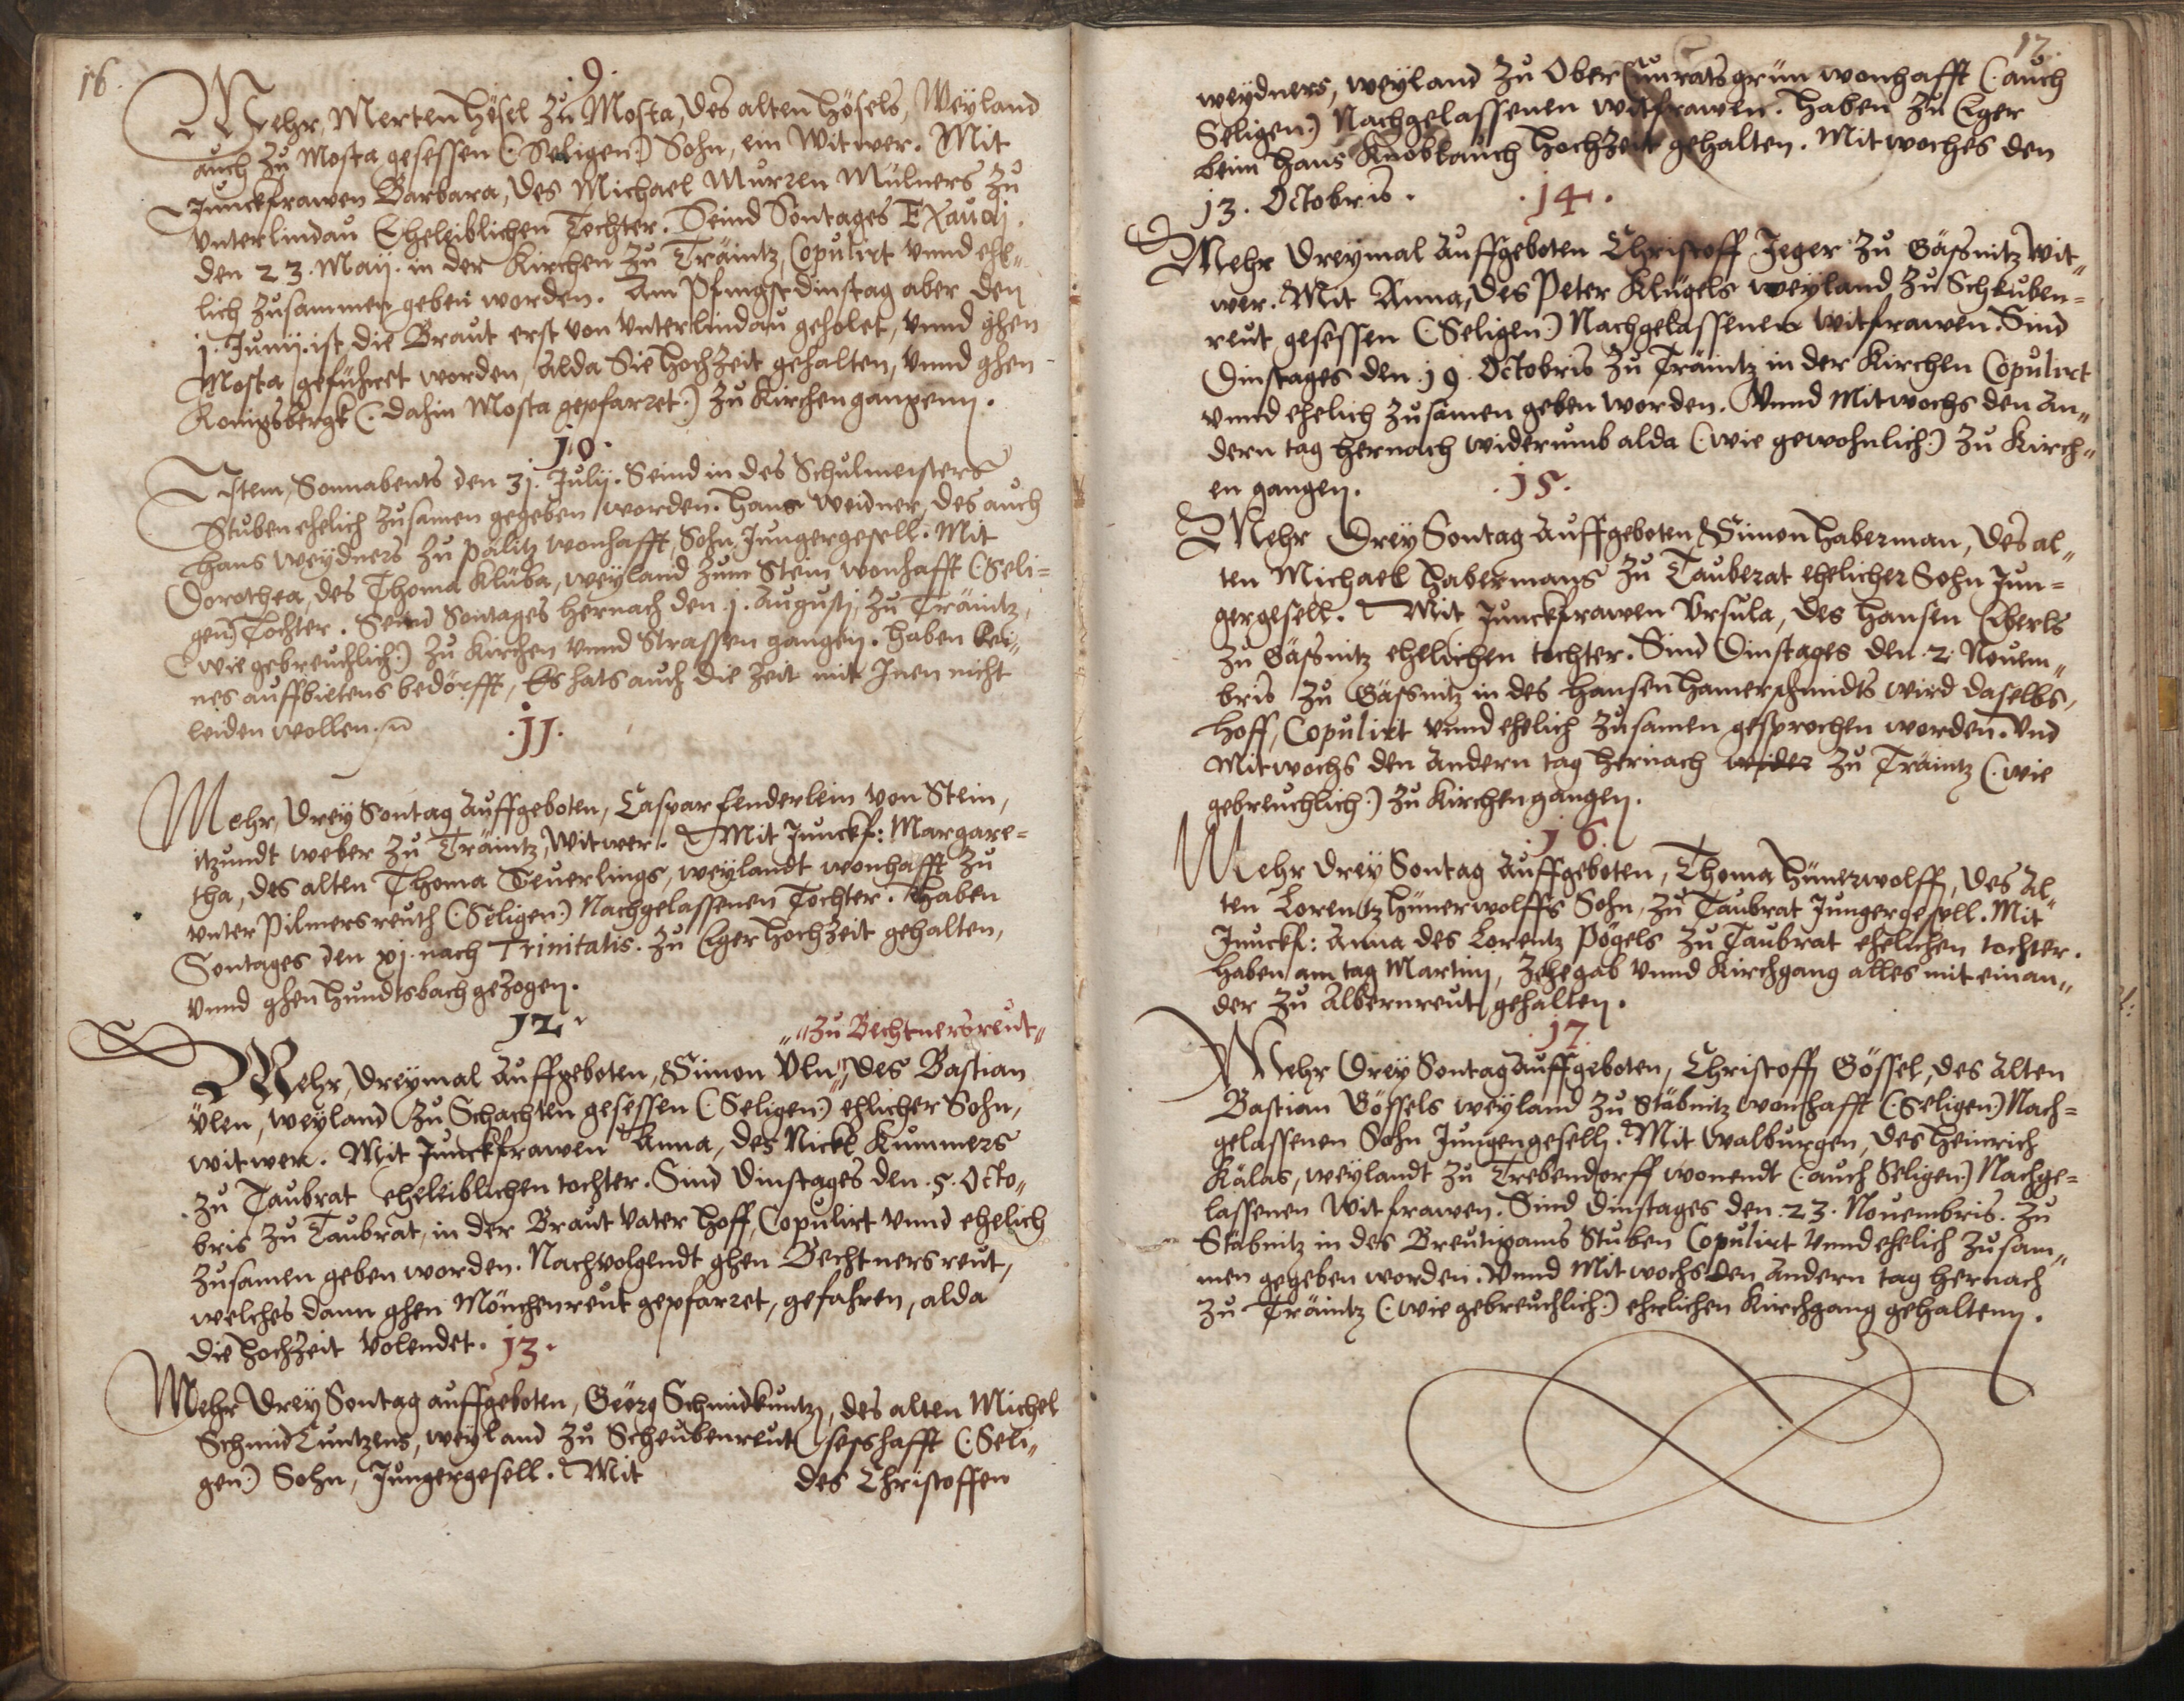 16.
.9.
Mehr, Merten Hösel zu Mosta, des alten Hösels, Weyland
auch zu Mosta gesessen (: Seligen:) Sohn, ein Witwer. Mit
Junckfrawen Barbara, des Michael Mürren Mülners zu
Vnterlindau Eheleiblichen Tochter. Seind Sontages Exaudj.
den 23. Maij. in der Kirchen zu Träintz, Copulirt vnnd ehe„
lich zusammen geben worden. Am Pfingstdinstag aber den
j. Junij. ist die Braut erst von Vnterlindau geholet, vnnd ghen
Mosta geführet worden, Alda Sie Hochzeit gehalten, vnnd ghen
Konigsbergk (: dahin Mosta gepfarret:) zu Kirchen gangenn.
10.
Item, Sonnabents den 3j. Julij. Seind in des Schulmeisters
Stuben ehelich zusamen gegeben worden. Hans Weidner, des auch
Hans Weydners zu Pälitz wonhafft, Sohn, Jungergesell. Mit
Dorothea, des Thoma Klüba, weyland zum Stein wonhafft (: Seli=
gen:) Tochter. Seind Sontages hernach den j. Augustj, zu Träintz,
(: wie gebreuchlich:) zu Kirchen vnnd Strassen gangen. Haben kei„
nes auffbietens bedörfft, Es hats auch die Zeit mit Inen nicht
leiden wollen.
.jj.
Mehr, drey Sontag auffgeboten, Caspar Enderlein von Stein,
itzundt weber zu Träintz, Witwer. Mit Junckf: Margare=
tha, des alten Thoma Teuerlings, weylandt wonhafft zu
vnter Pilmersreuth (: Seligen:) Nachgelassenen Tochter. Haben
Sontages den xj. nach Trinitatis. zu Eger Hochzeit gehalten,
vnnd ghen Hundtsbach gezogen.
12.
„zu Bechtnersreut„
Mehr, dreymal auffgeboten, Simon Vln„ des Bastian
Vlen, weyland zu Schachten gesessen (: Seligen:) ehlicher Sohn,
witwer. Mit Junckfrawen Anna, des Nickl Kummers
zu Taubrat eheleiblichen tochter. Sind Dinstages den .5. Octo„
bris zu Taubrat, in der Braut Vater Hoff, Copulirt vnnd ehelich
zusamen geben worden. Nachvolgendt ghen Bechtnersreut,
welches dann ghen Mönchenreut gepfarret, gefahren, alda
die Hochzeit volendet.
13.
Mehr drey Sontag auffgeboten, Geörg Schmidkuntz, des alten Michel
Schmid Cuntzens, weyland zu Scheubenreut sesshafft (: Seli„
gen:) Sohn, Jungergesell. Mit des Christoffen
17.
weydners, weyland zu Ober Cunratsgrün wonhafft (: auch
Seligen:) Nachgelassenen witfrawen. Haben zu Eger
beim Hans Knoblauch Hochzeit gehalten. Mitwoches den
13. Octobris.
.14.
Mehr dreymal auffgeboten Christoff Jeger zu Gässnitz Wit„
wer. Mit Anna, des Peter Klügels weyland zu Scheuben=
reut gesessen (: Seligen:) Nachgelassenen Witfrawen. Sind
Dinstages den .19. Octobris zu Träintz in der Kirchen Copulirt
vnnd ehelich zusamen geben worden. Vnnd Mitwochs den An„
dern tag hernach widerumb alda (: wie gewohnlich:) zu Kirch„
en gangen.
.15.
Mehr Drey Sontag auffgeboten, Simon Haberman, des al„
ten Michael Habermans zu Tauberat ehelicher Sohn Jun=
gergesell. Mit Junckfrawen Vrsula, des Hansen Eberls
zu Gässnitz ehelichen tochter. Sind Dinstages den .2. Nouem„
bris zu Gässnitz in des Hansen Hamerschmidts wird daselbs,
Hoff, Copulirt vnnd ehelich zusamen gesprochen worden. Vnd
Mitwochs den andern tag hernach wider zu Träintz (: wie
gebreuchlich:) zu Kirchen gangen.
.16.
Mehr drey Sontag auffgeboten, Thoma Hünerwolff, des Al„
ten Lorentz Hünerwolffs Sohn, zu Taubrat Jungergesell. Mit
Junckf: Anna des Lorentz Pögels zu Taubrat ehelichen tochter.
Haben am tag Martinj, Zehegab vnnd Kirchgang alles mit einan„
der zu Albernreut gehalten.
.17.
Mehr Drey Sontag auffgeboten, Christoff Gössel, des Alten
Bastian Gössels weyland zu Stäbnitz wonhafft (: Seligen:) Nach=
gelassenen Sohn Jungengesell. Mit Walburgen, des Heinrich
Kälas, weylandt zu Trebendorff wonendt (: auch Seligen:) Nachge=
lassenen Witfrawen. Sind Dinstages den .23. Nouembris. zu
Stäbnitz in des Breutigams Stuben Copulirt vnnd ehelich zusam„
men gegeben worden. Vnnd Mitwochs den andern tag hernach
zu Träintz (: wie gebreuchlich:) ehrlichen Kirchgang gehaltenn.